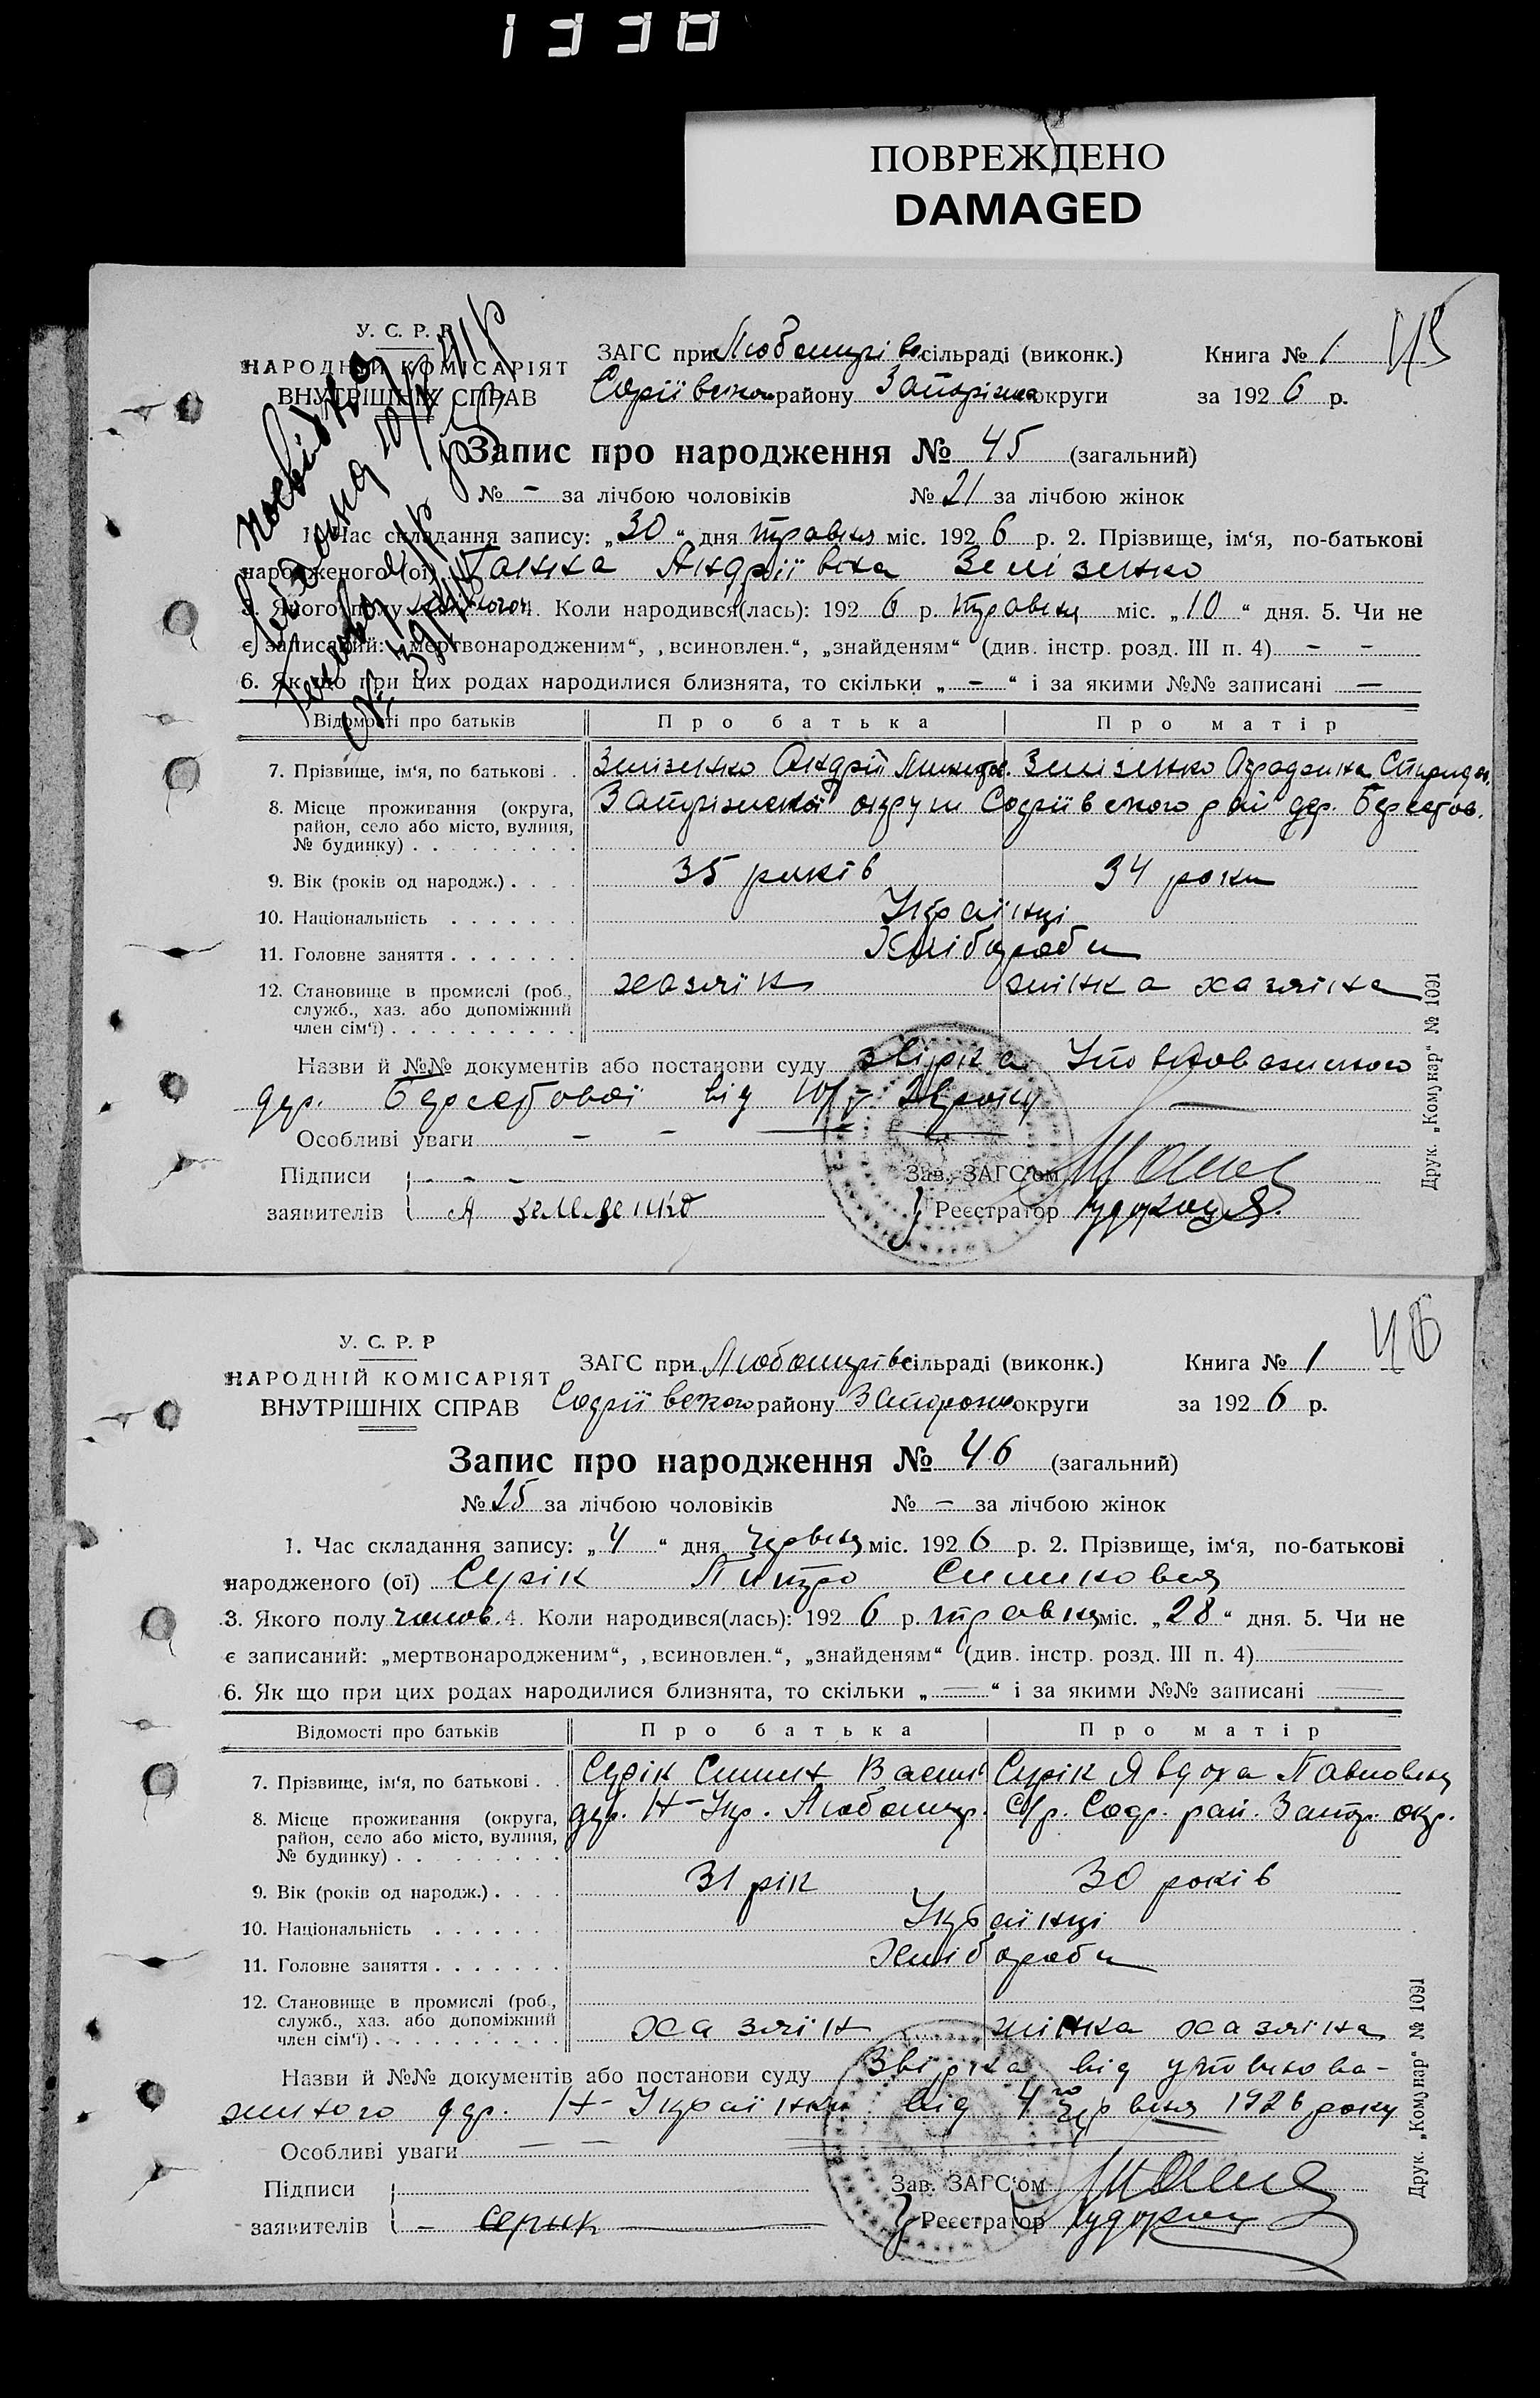 1330
ПОВРЕЖДЕНО
DAMAGED
У. С. Р. Р
НАРОДНІЙ КОМІСАРІЯТ
ВНУТРІШНІХ СПРАВ
ЗАГС при Любомирівс сільраді (виконк.)
Книга № 1
45
Софіївського району Запоріжс округи
за 1926 р.
Запис про народження № 45 (загальний)
№ - за лічбою чоловіків № 21 за лічбою жінок
1. Час складання запису: „30“ дня травня міс. 1926 р. 2. Прізвище, ім‘я, по-батькові
народженого (ої) Ганна Андріївна Зелізенко
3. Якого полу жіночого 4. Коли народився(лась): 1926 р. травня міс. „10“ дня. 5. Чи не
є записаний: „мертвонародженим“, „всиновлен.“, „знайденям“ (див. інстр. розд. III п. 4) - -
6. Як що при цих родах народилися близнята, то скільки „-“ і за якими №№ записані —
Відомості про батьків Про батька Про матір
7. Прізвище, ім‘я, по батькові . . Зелізенко Андрій Зелізенко
8. Місце проживання (округа, район, село або місто, вулиця, № будинку) Запоріжської округи Софіївського рай дер. Берестов.
9. Вік (років од народж.) 35 років 34 роки
10. Національність Українці
11. Головне заняття Хлібороби
12. Становище в промислі (роб., служб., хаз. або допоміжний член сім‘ї) хазяїн жінка хазяїна
Назви й №№ документів або постанови суду звірка Уповноваженого
дер. Берестової від 10/V 26 року
Особливі уваги - -
Підписи - - - Зав. ЗАГС‘ом
заявителів Реєстратор
Друк. „Комунар“ № 1091
У. С. Р. Р
НАРОДНІЙ КОМІСАРІЯТ
ВНУТРІШНІХ СПРАВ
ЗАГС при Любомирівс сільраді (виконк.)
Книга № 1
46
Софіївського району Запорожс округи
за 1926 р.
Запис про народження № 46 (загальний)
№ 25 за лічбою чоловіків № - за лічбою жінок
1. Час складання запису: „4“ дня червня міс. 1926 р. 2. Прізвище, ім‘я, по-батькові
народженого (ої) Сірік Питро Силиковия
3. Якого полу чолов. 4. Коли народився(лась): 1926 р. травня міс. „28“ дня. 5. Чи не
є записаний: „мертвонародженим“, „всиновлен.“, „знайденям“ (див. інстр. розд. III п. 4)
6. Як що при цих родах народилися близнята, то скільки „—“ і за якими №№ записані —
Відомості про батьків Про батька Про матір
7. Прізвище, ім‘я, по батькові . . Сірік Васил Сірік Явдоха Павловна
8. Місце проживання (округа, район, село або місто, вулиця, № будинку) дер. Н-Укр. Любомир. С/р. Соф. рай. Запор. окр.
9. Вік (років од народж.) 31 рік 30 років
10. Національність Українці
11. Головне заняття Хлібороби
12. Становище в промислі (роб., служб., хаз. або допоміжний член сім‘ї) хазяїн жінка хазяїна
Назви й №№ документів або постанови суду Звірка від уповнова-
женого дер. Н-Українки від 4го червня 1926 року
Особливі уваги — —
Підписи Зав. ЗАГС‘ом
заявителів - Серык Реєстратор
Друк. „Комунар“ № 1091